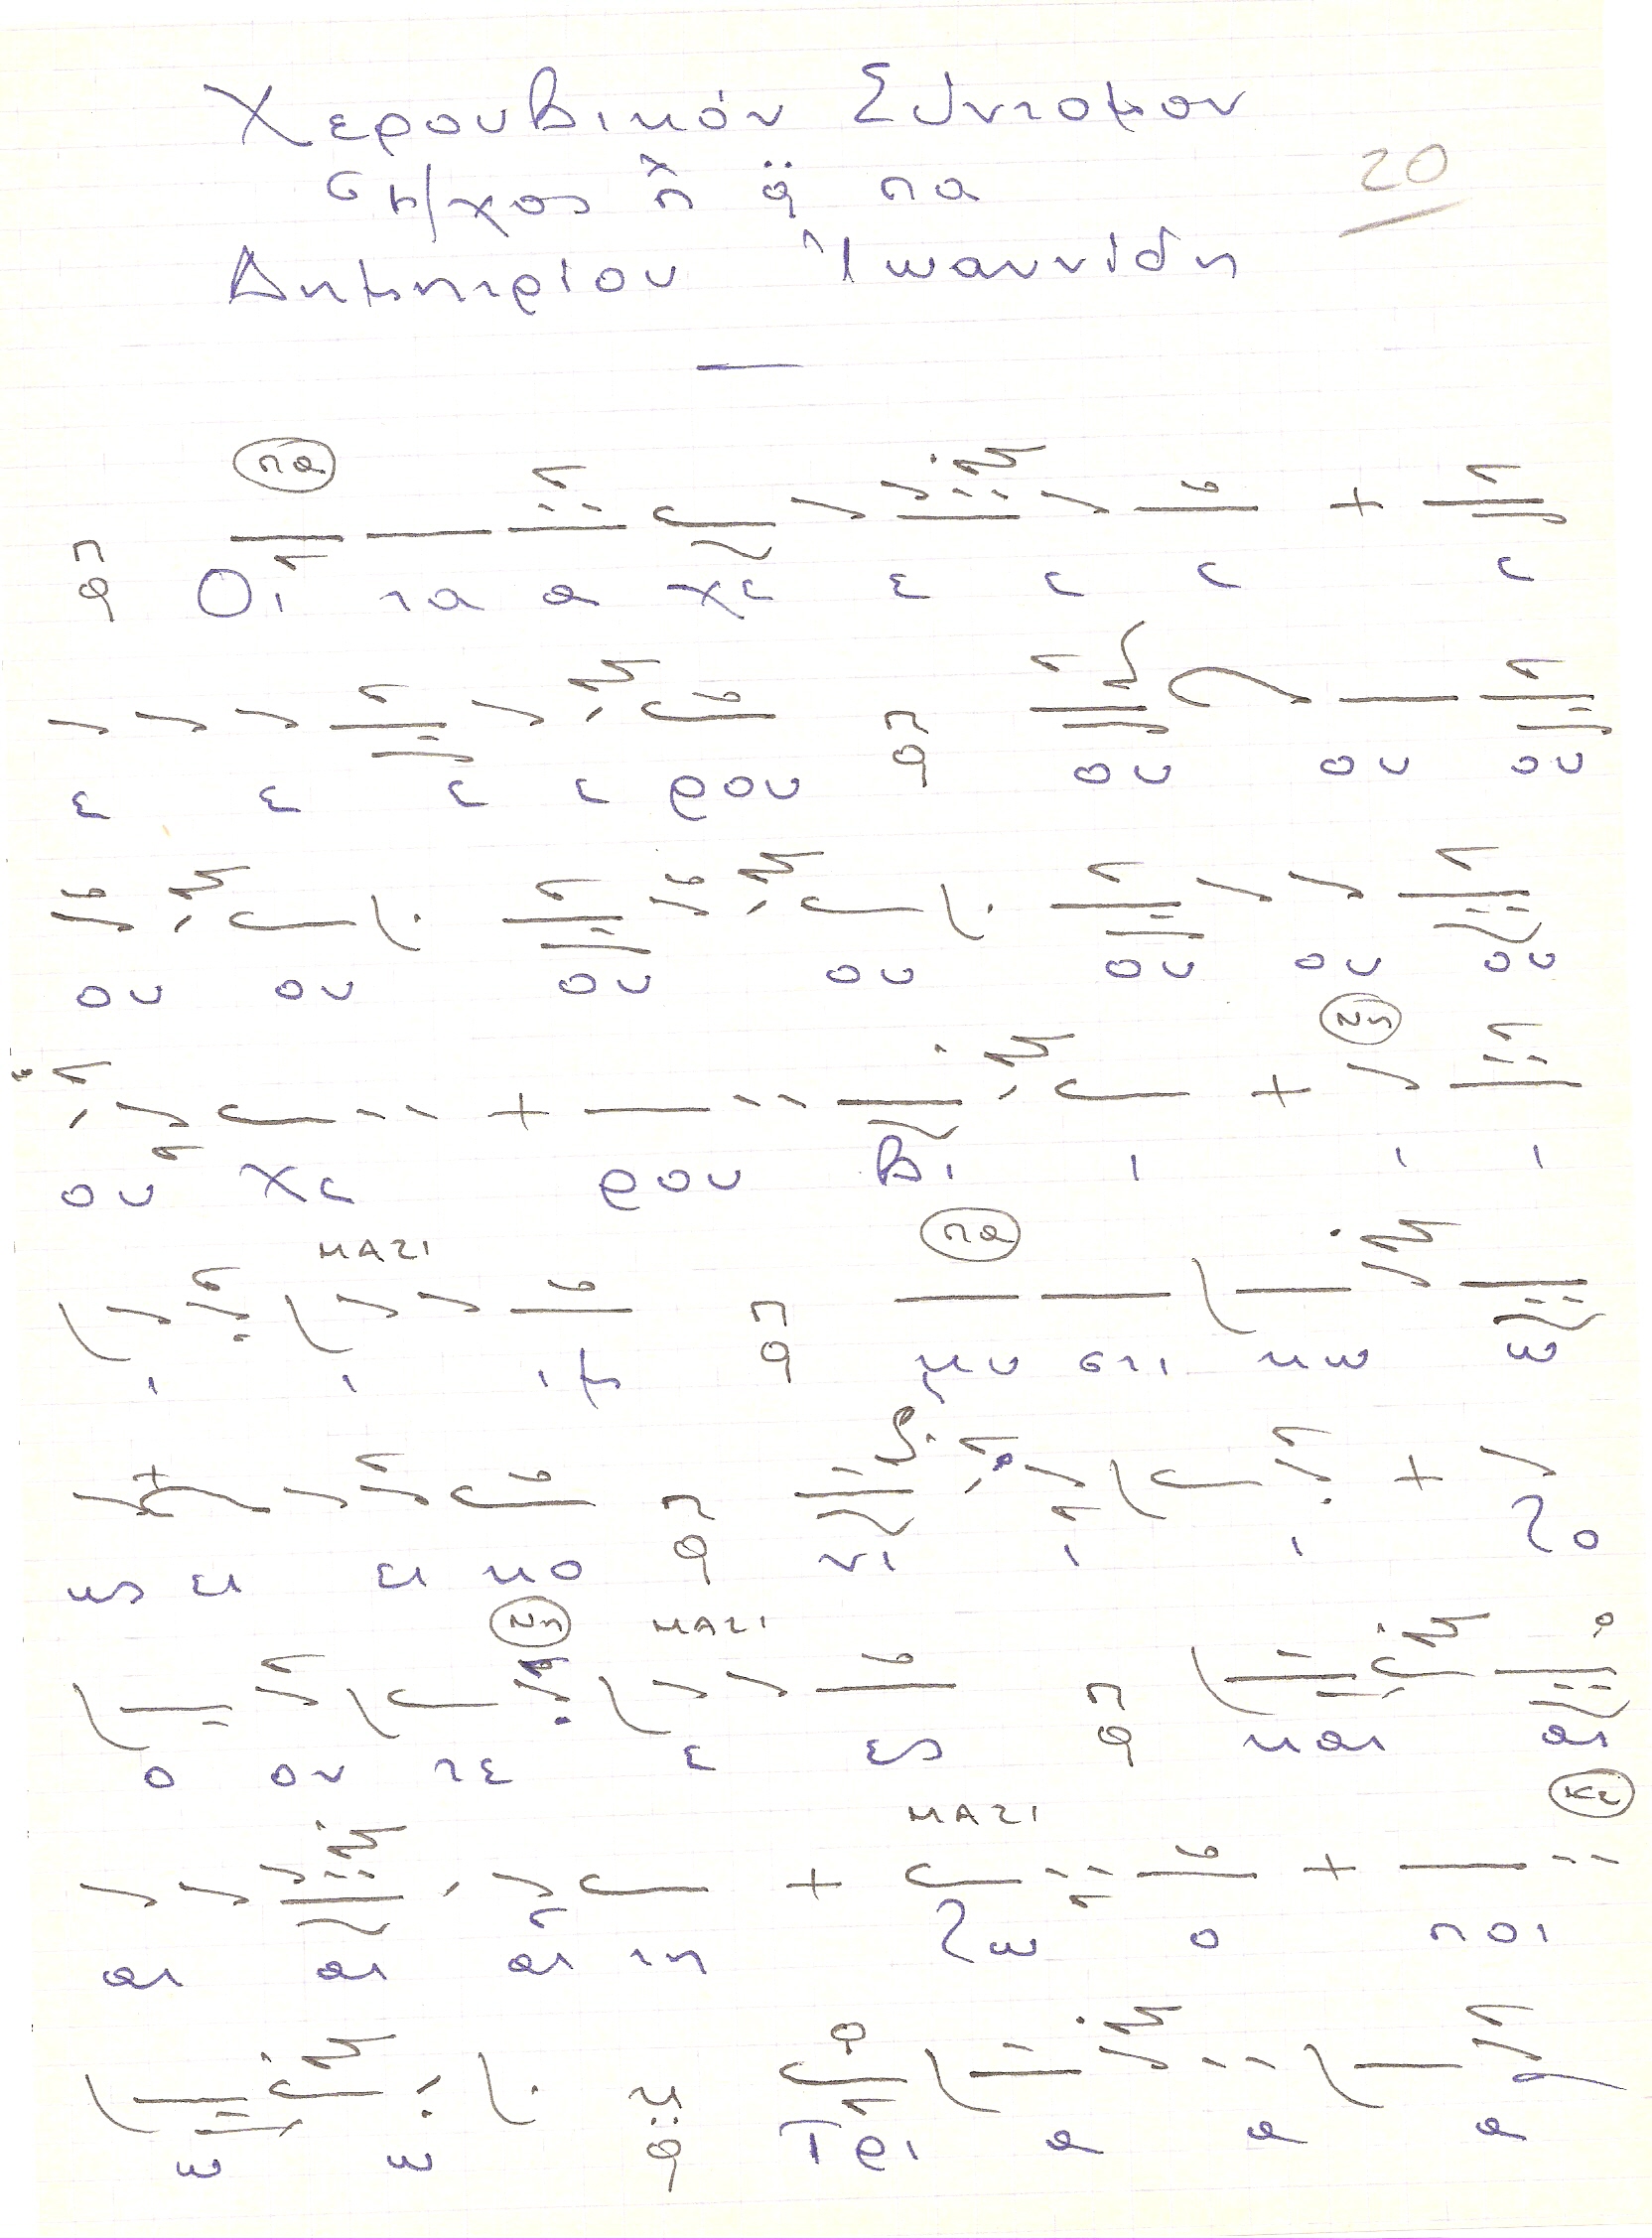 Χερουβικόν Σύντομον
Ἦχος πλ. α πα
20
Δημητρίου Ἰωαννίδη
πα
Οι τα α χε ε ε ε ε
ε ε ε ε ρου ου ου ου
ου ου ου ου ου ου ου
νη
ου χε ρου βι ι ι ι
ΜΑΖΙ πα
ι ι ιμ μυ στι κω ω
κως ει ει κο νι ι ι ζο
νη ΜΑΖΙ
ο ον τε ε ες και αι
ΜΑΖΙ κε
αι αι αι τη ζω ο ποι
ω ω Τρι α α α